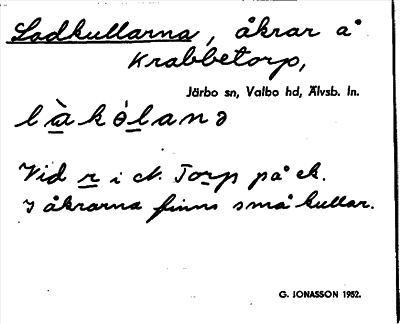 Ladkullarna, åkrar å
Krabbetorp,
Järbo sn, Valbo hd, Älvsb. ln.
Vid r i ck. Torp på ek.
I åkrarna finns små kullar.
G. JONASSON 1952.